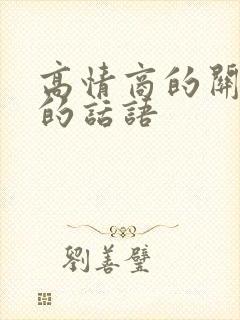 高情商的關
的話語
劉善璧